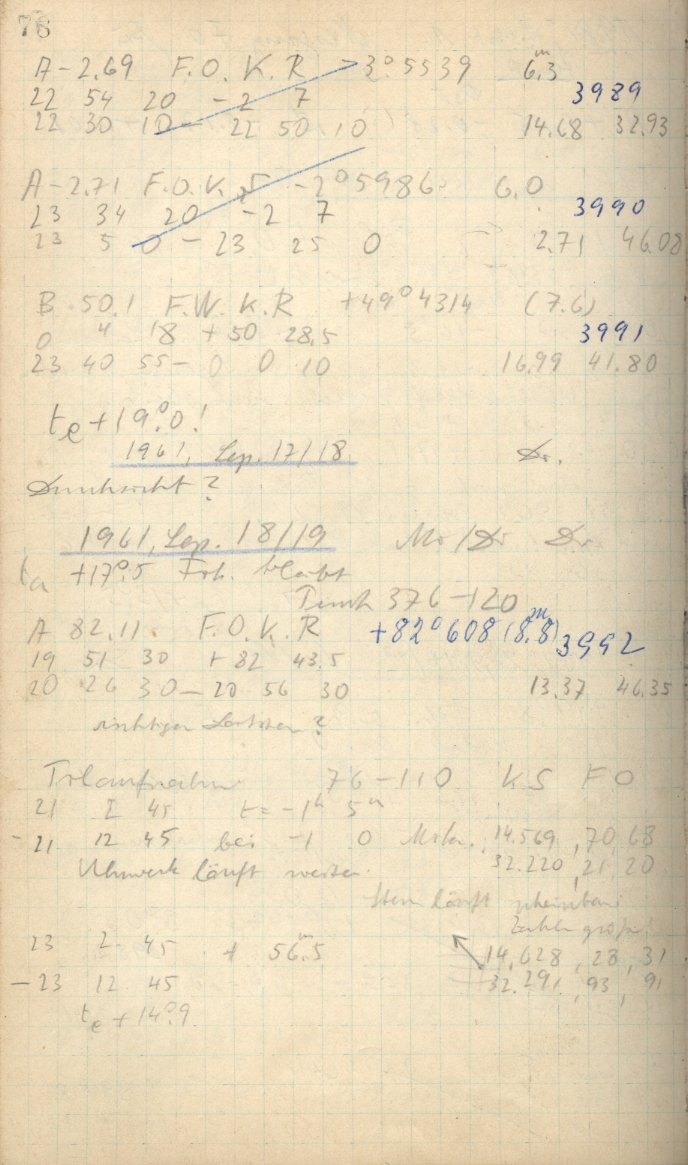 76
A - 2.69 F. O. K. R -3°5539 6.3 m
22 54 20 - 2 7 3989
22 30 10 - 22 50 10 14.68 32.93
A - 2.71 F. O. K. -2°5986 6.0
23 34 20 - 2 7 3990
23 5 0 - 23 25 0 2.71 46.08
B 50.1 F. W. K. R +49°4314 (7.6)
0 4 18 + 50 28.5 3991
23 40 55 - 0 0 10 16.99 41.80
te + 19°.0!
1961, Sep. 17/18 Dr.
?
1961, Sep. 18/19 Mo / Di Dr.
ta +17°.5 Frh. bleibt
376-120
A 82.11. F. O. K. R +82°608 (8.8 m) 3992
19 51 30 + 82 43.5
20 26 30 - 20 56 30 13.37 46.35
richtiger ?
76-110 KS F O
21 2 45 t = -1h 5m
- 21 12 45 bei -1 0 Mikr. 14.569, 70, 68
Uhrwerk läuft weiter. 32.220, 21, 20
Stern läuft scheinbar
Zahlen größer!
23 2 45 + 56.5 m 14.628, 28, 31
- 23 12 45 32.291, 93, 91
te + 14°.9